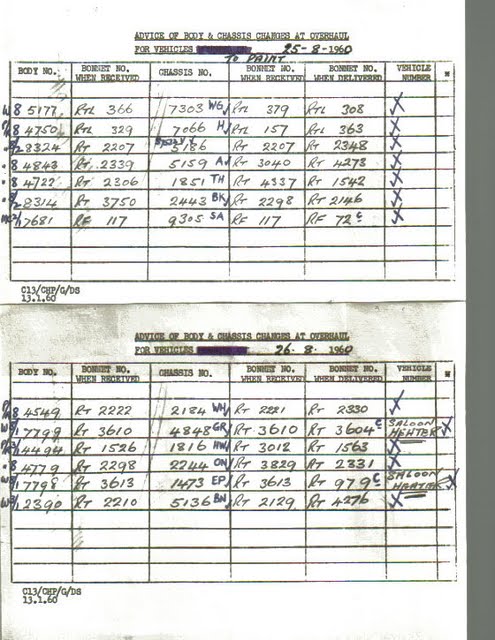 ADVICE OF BODY & CHASSIS CHANGES AT OVERHAUL
FOR VEHICLES 25-8-1960
TO PAINT
BODY NO. BONNET NO. WHEN RECEIVED CHASSIS NO. BONNET NO. WHEN RECEIVED BONNET NO. WHEN DELIVERED VEHICLE NUMBER
W8 5177 RTL 366 7303 WG RTL 379 RTL 308 X
8 4750 RTL 329 7066 H RTL 157 RTL 363 X
3324 RT 2207 RT 2207 RT 2348 X
8 4843 RT 2339 5159 A RT 3040 RT 4273 X
8 4722 RT 2306 1851 TH RT 4337 RT 1542 X
8314 RT 3750 2443 BK RT 2298 RT 2146 X
7681 RF 117 9305 SA RF 117 RF 72 C X
C13/CHP/G/DS
13.1.60
ADVICE OF BODY & CHASSIS CHANGES AT OVERHAUL
FOR VEHICLES 26-8-1960
BODY NO. BONNET NO. WHEN RECEIVED CHASSIS NO. BONNET NO. WHEN RECEIVED BONNET NO. WHEN DELIVERED VEHICLE NUMBER
8 4549 RT 2222 2184 WH RT 2221 RT 2330 X
7799 RT 3610 4848 GR RT 3610 RT 3604 C SALOON HEATER X
4494 RT 1526 1816 HW RT 3012 RT 1563 X
8 4779 RT 2298 2244 ON RT 3829 RT 2331 X
7798 RT 3613 1473 EP RT 3613 RT 979 C SALOON HEATER X
2390 RT 2210 5136 BN RT 2129 RT 4276 X
C13/CHP/G/DS
13.1.60